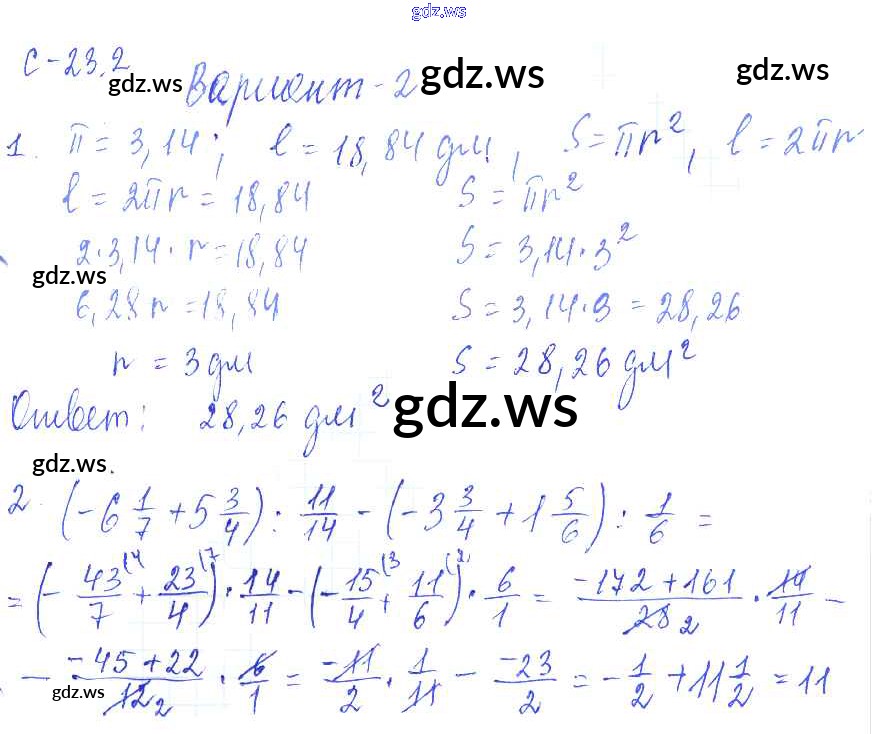 gdz.ws
С-23.2
gdz.ws Вариант-2 gdz.ws gdz.ws
1. π = 3,14; l = 18,84 дм, S = πr², l = 2πr
l = 2πr = 18,84 S = πr²
2·3,14·r = 18,84 S = 3,14·3²
gdz.ws
6,28r = 18,84 S = 3,14·9 = 28,26
r = 3 дм S = 28,26 дм²
Ответ: 28,26 дм² gdz.ws
gdz.ws
2. (-6 1/7 + 5 3/4) : 11/14 - (-3 3/4 + 1 5/6) : 1/6 =
= (-43/7 (4 + 23/4 (7) · 14/11 - (-15/4 (3 + 11/6 (2) · 6/1 = (-172+161)/28 2 · 14/11 -
- (-45+22)/12 2 · 6/1 = -11/2 · 1/11 - -23/2 = -1/2 + 11 1/2 = 11
gdz.ws